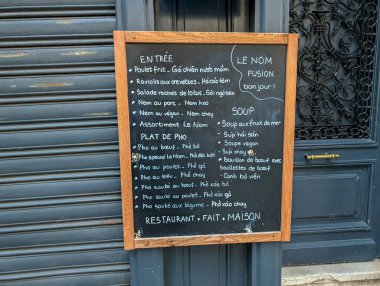 ENTRÉE
* Poulet frit - Gà chiên nước mắm
* Raviolis aux crevettes - Há cảo tôm
* Salade racines de lotus - Gỏi ngó sen
* Nem au porc - Nem heo
* Nem au végan - Nem chay
* Assortiment Le Nom
PLAT DE PHO
* Pho au bœuf - Phở bò
* Pho special Le Nom - Phở đặc biệt
* Pho au poulet - Phở gà
* Pho au tofu - Phở chay
* Pho sauté au bœuf - Phở xào bò
* Pho sauté au poulet - Phở xào gà
* Pho sauté aux légumes - Phở xào chay
LE NOM
FUSION
bonjour !
SOUP
* Soup aux fruit de mer
- Súp hải sản
* Soupe vegan
- Súp chay
* Bouillon de bœuf avec
boulettes de bœuf
- Canh bò viên
RESTAURANT * FAIT * MAISON